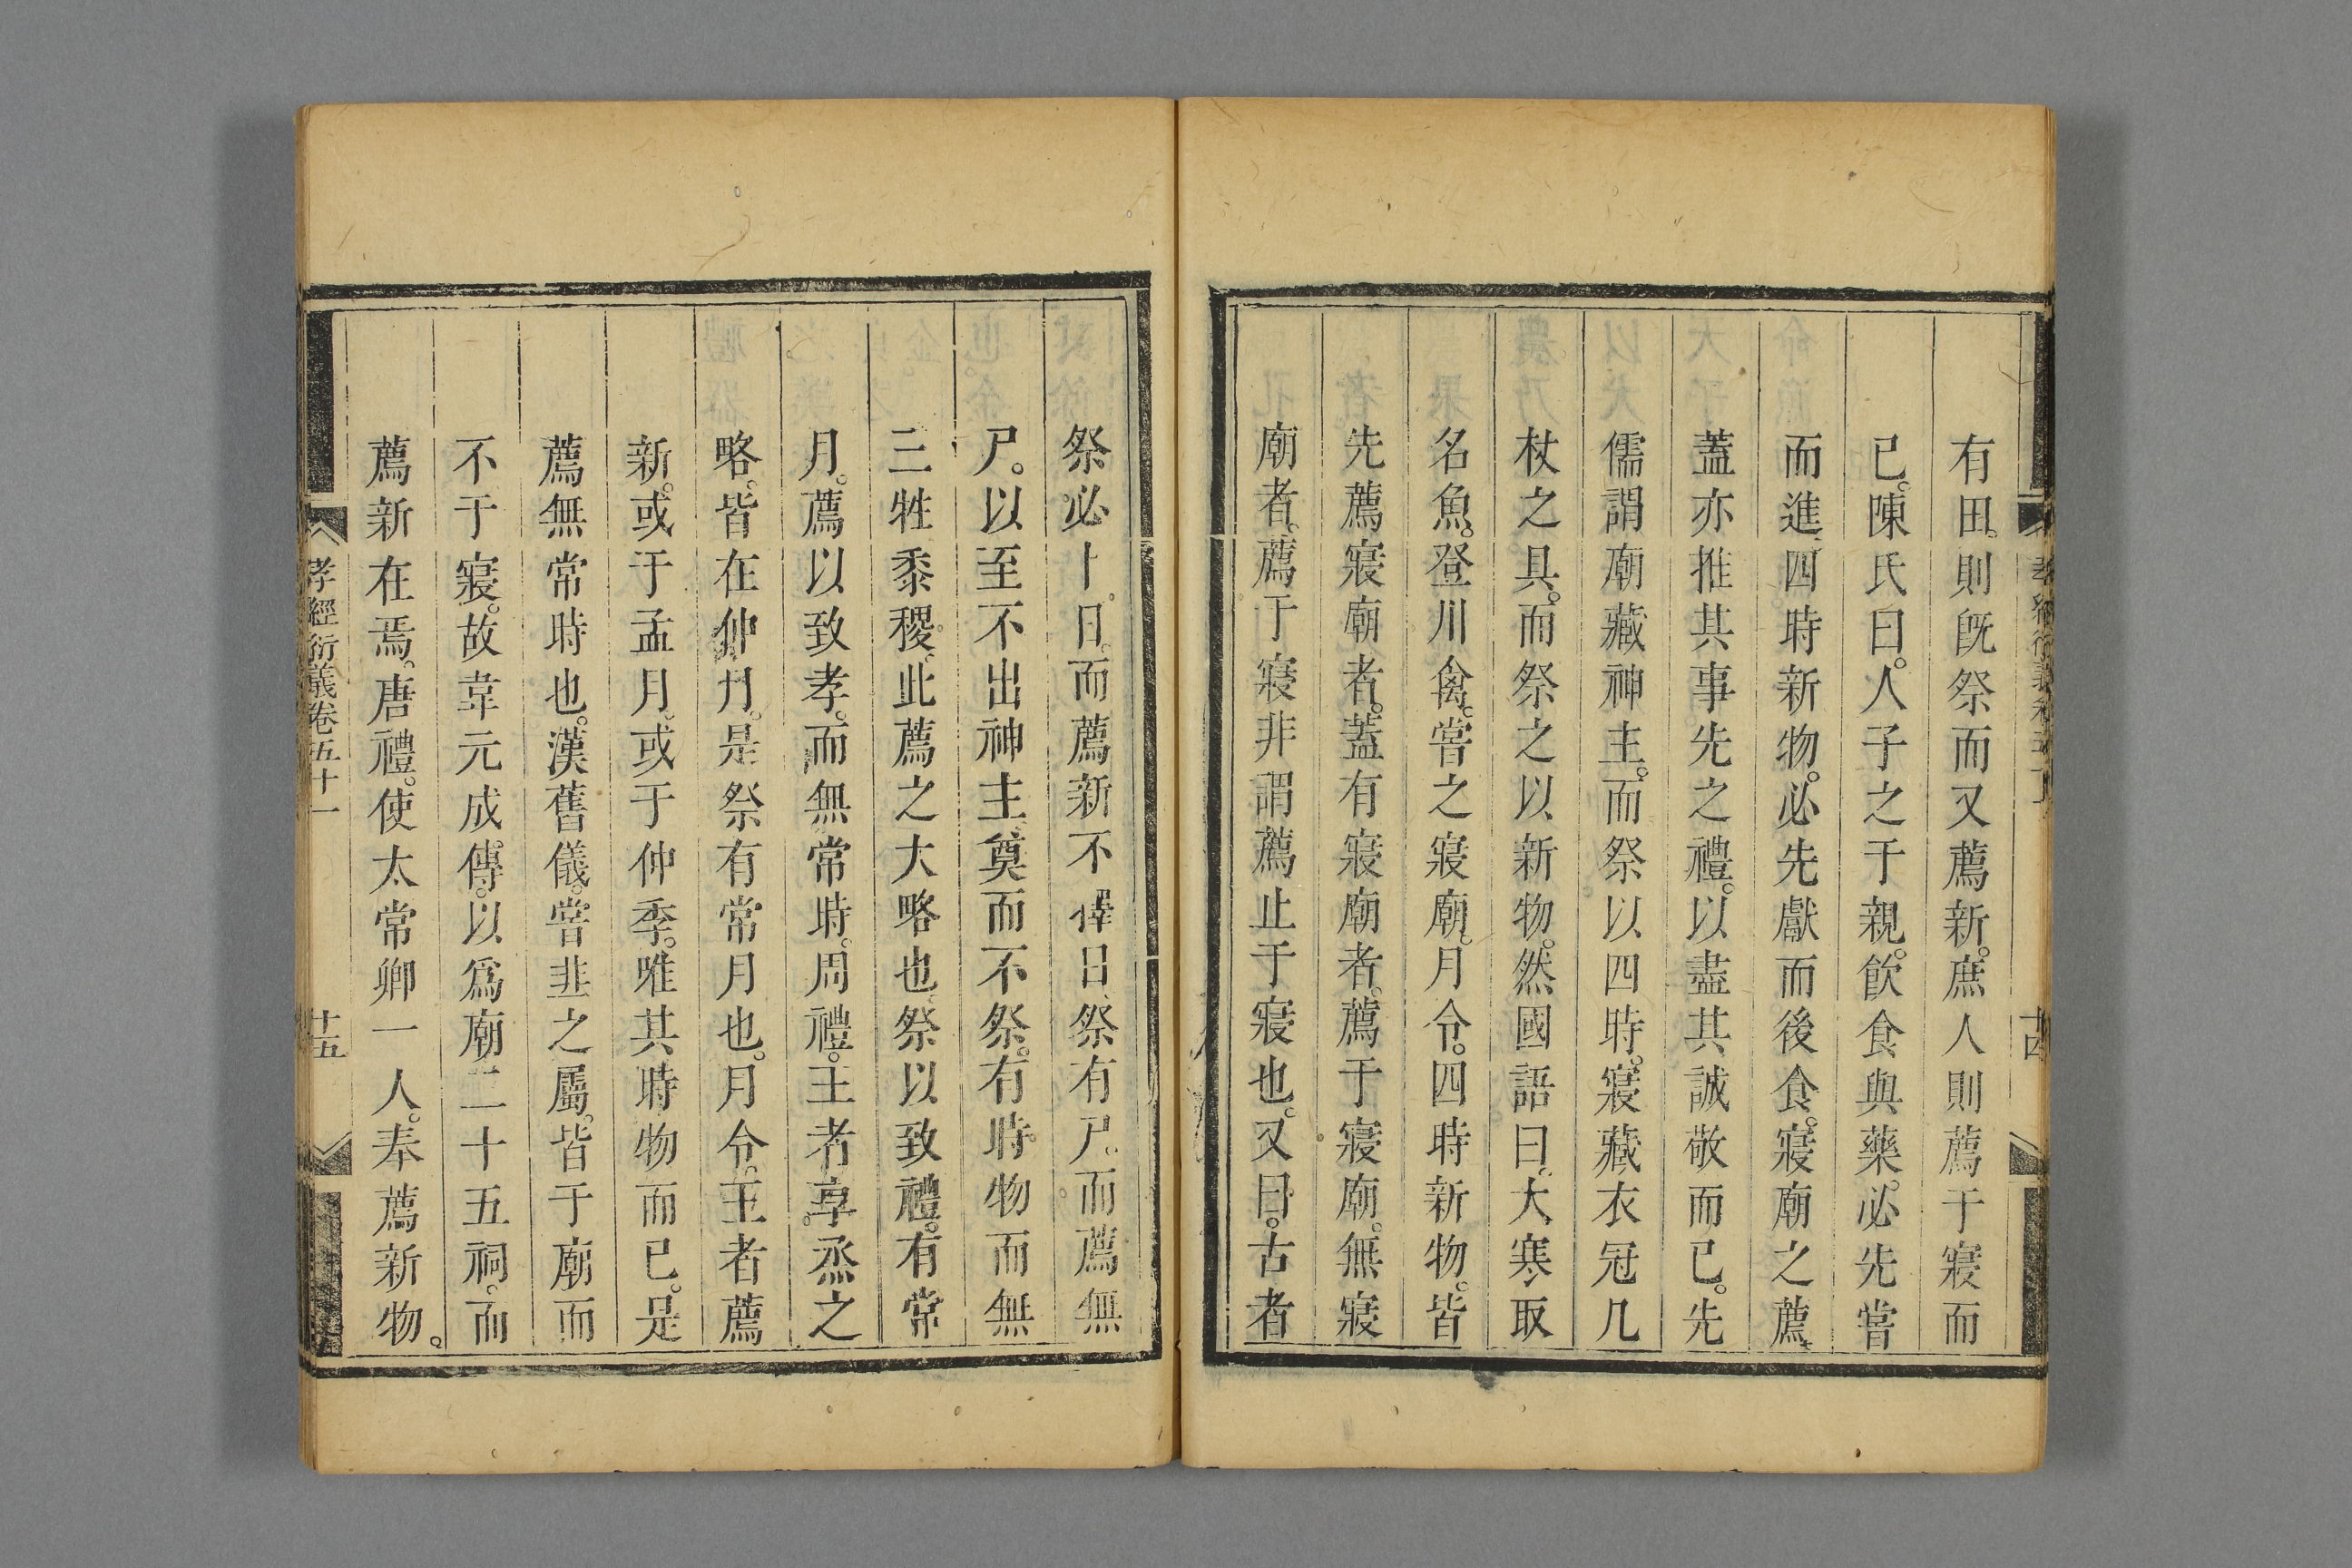 有田。則既祭而又薦新。庶人則薦于寢而
已。陳氏曰。人子之于親。飲食與藥。必先嘗
而進。四時新物。必先獻而後食。寢廟之薦。
蓋亦推其事先之禮。以盡其誠敬而已。先
儒謂廟藏神主。而祭以四時。寢藏衣冠几
杖之具。而祭之以新物。然國語曰。大寒取
名魚。登川禽。嘗之寢廟。月令。四時新物。皆
先薦寢廟者。蓋有寢廟者。薦于寢廟。無寢
廟者。薦于寢非謂薦止于寢也。又曰。古者
十四
祭必卜日。而薦新不擇日。祭有尸。而薦無
尸。以至不出神主奠而不祭。有時物而無
三牲黍稷。此薦之大略也。祭以致禮。有常
月。薦以致孝。而無常時。周禮。王者享烝之
略。皆在仲月。是祭有常月也。月令。王者薦
新。或于孟月。或于仲季。唯其時物而已。是
薦無常時也。漢舊儀。嘗韭之屬。皆于廟而
不于寢。故韋元成。傳。以爲廟二十五祠。而
薦新在焉。唐禮。使太常卿一人。奉薦新物。
孝經衍義卷五十一
十五